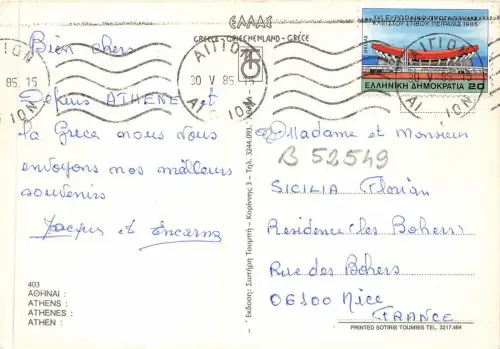 ΕΛΛΑΣ
GRECE - GRIECHENLAND - GRÈCE
ΑΙΓΙΟΝ
85.15
ΑΙΓΙΟΝ
30 V 85.15
ΑΙΓΙΟΝ
ΑΙΓΙΟΝ
30 V 85
XVI ΕΥΡΩΠΑΪΚΟ ΠΡΩΤΑΘΛΗΜΑ
ΚΛΕΙΣΤΟΥ ΣΤΙΒΟΥ, ΠΕΙΡΑΙΑΣ 1985
HELLAS
ΕΛΛΗΝΙΚΗ ΔΗΜΟΚΡΑΤΙΑ 20
Bien chers
Depuis ATHENE et
la Grèce nous vous
envoyons nos meilleurs
souvenirs
Jacques et Encarna
403
ΑΘΗΝΑΙ :
ATHENS :
ATHENES :
ATHEN :
Έκδοση: Σωτήρη Τουμπή - Κορίννης 3 - Τηλ. 3244.093
Madame et monsieur
B 52549
SICILIA Florian
Residence (les Bohers)
Rue des Bohers
06100 Nice
FRANCE
PRINTED SOTIRIS TOUMBIS TEL. 3217.484